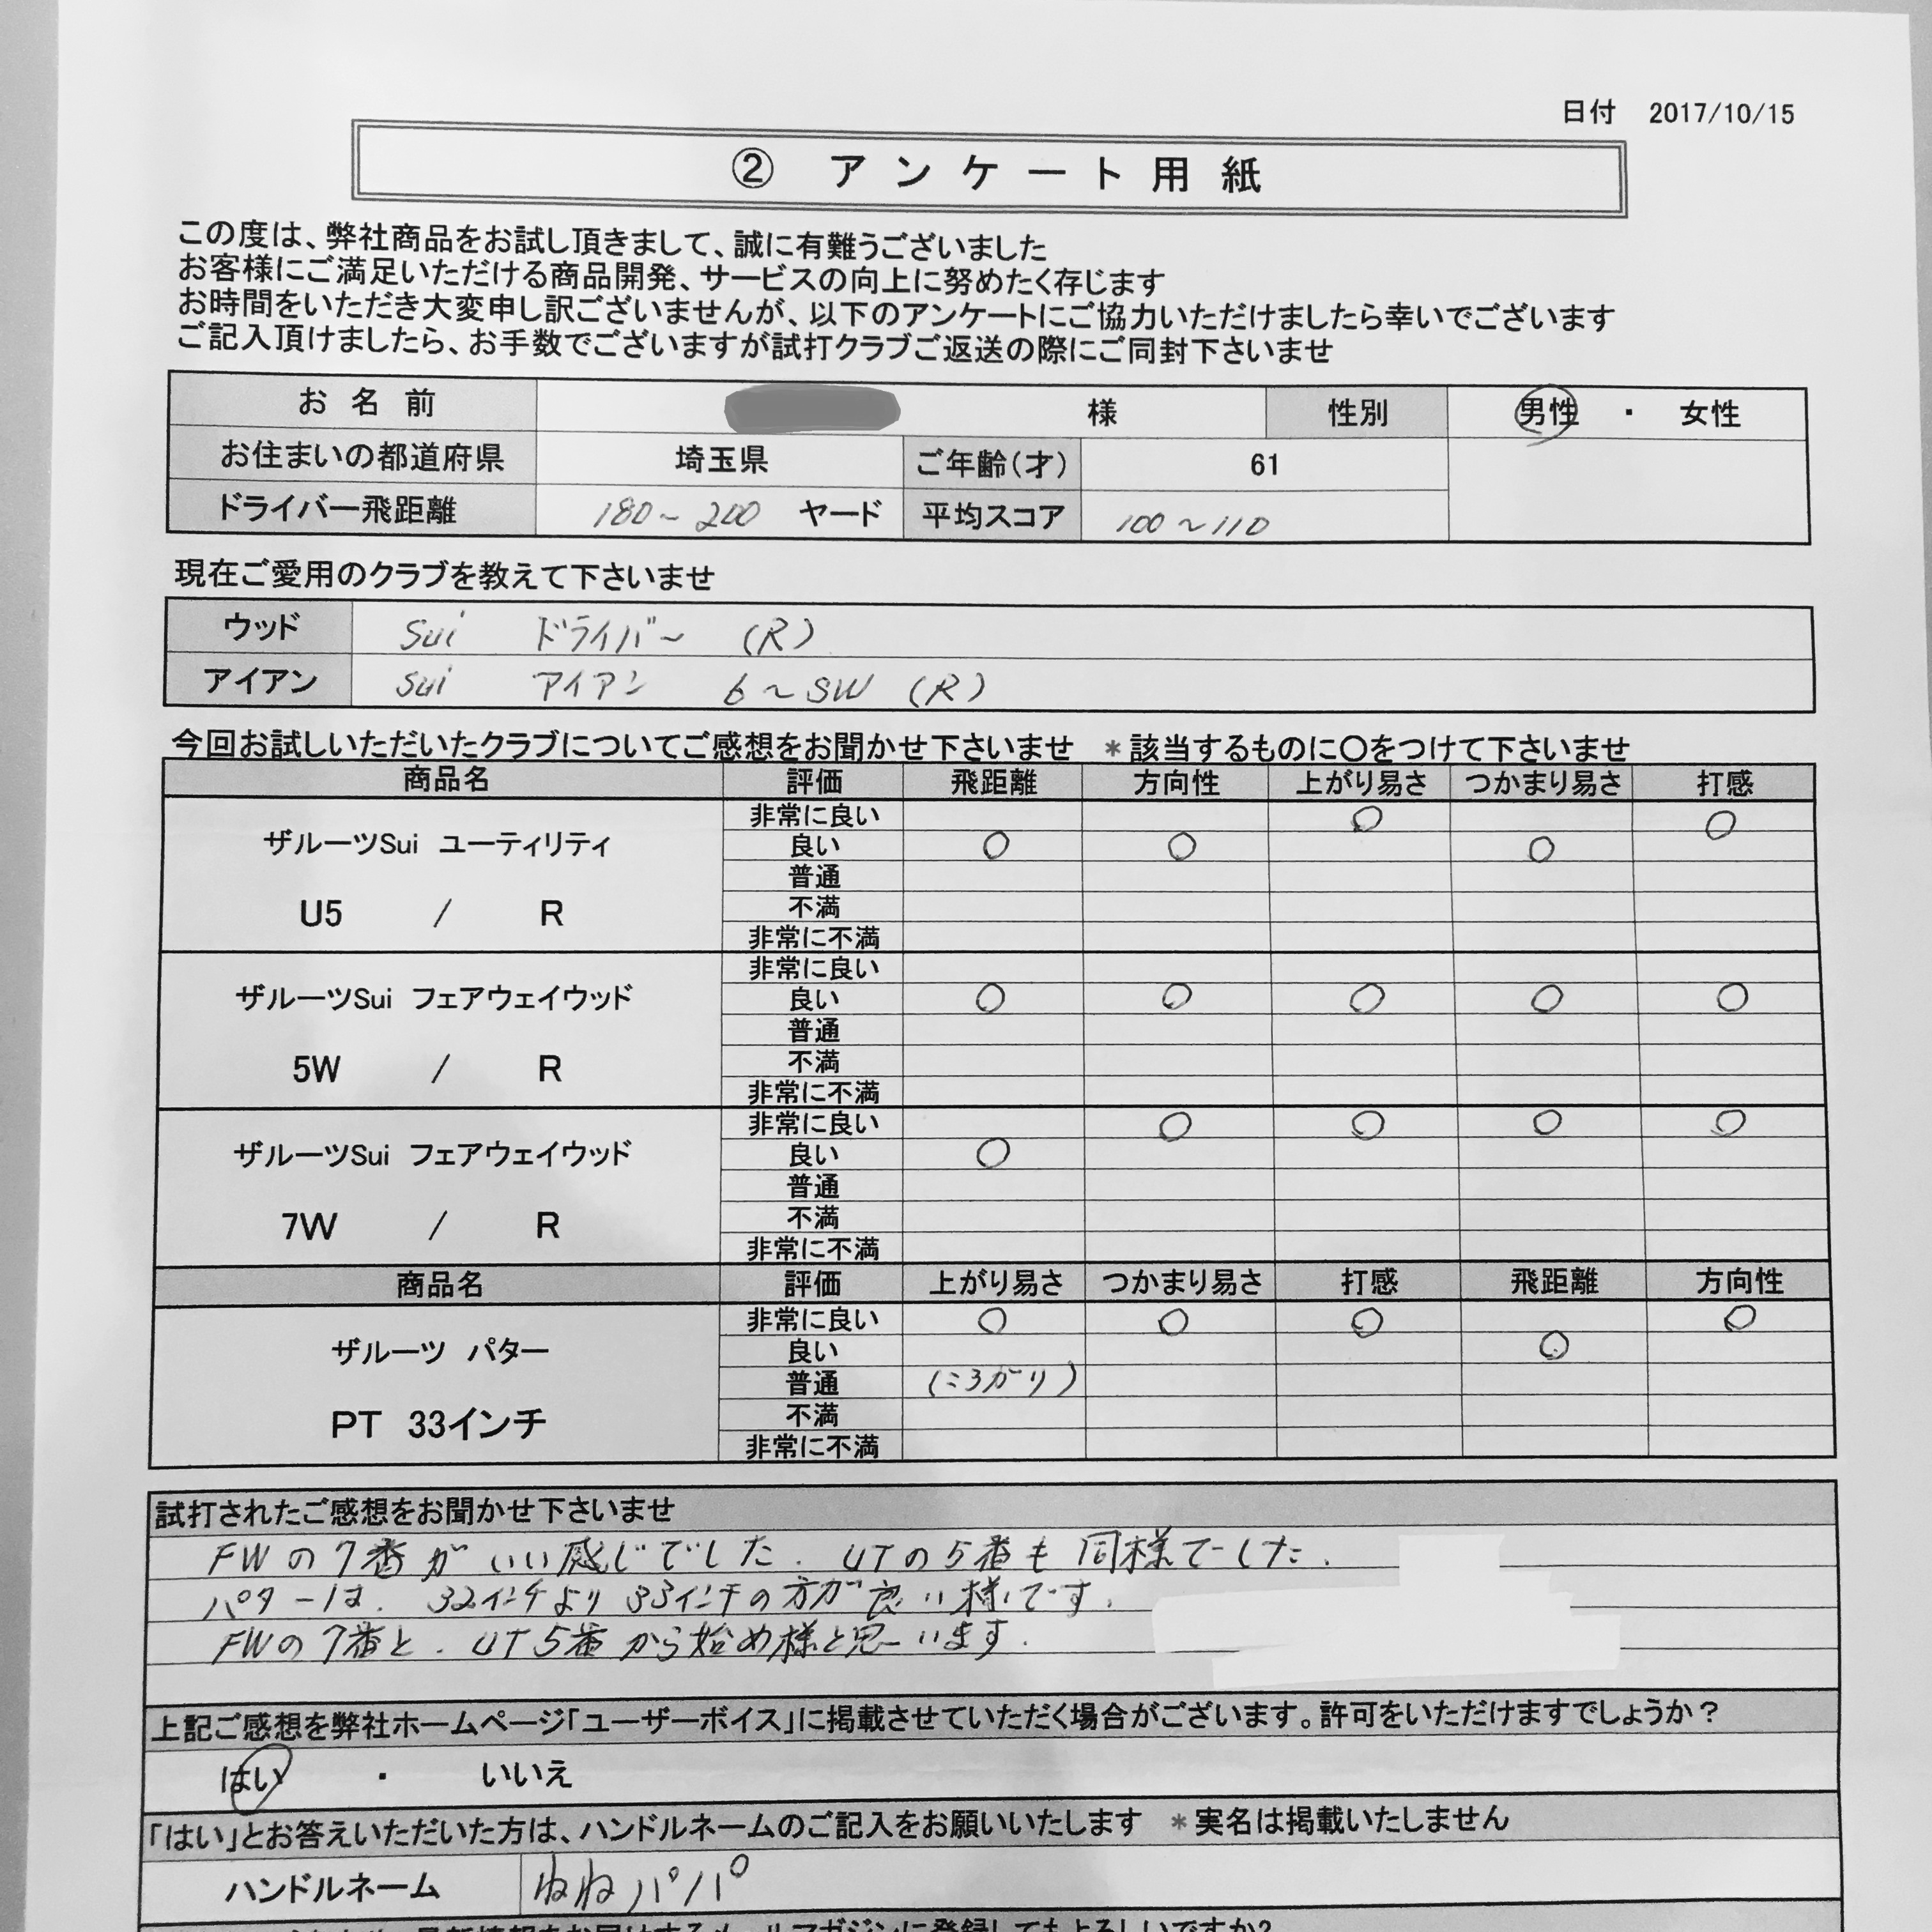 日付 2017/10/15
② アンケート用紙
この度は、弊社商品をお試し頂きまして、誠に有難うございました
お客様にご満足いただける商品開発、サービスの向上に努めたく存じます
お時間をいただき大変申し訳ございませんが、以下のアンケートにご協力いただけましたら幸いでございます
ご記入頂けましたら、お手数でございますが試打クラブご返送の際にご同封下さいませ
お名前 様 性別 男性 ・ 女性
お住まいの都道府県 埼玉県 ご年齢(才) 61
ドライバー飛距離 180～200 ヤード 平均スコア 100～110
現在ご愛用のクラブを教えて下さいませ
ウッド Sui ドライバー (R)
アイアン Sui アイアン 6～SW (R)
今回お試しいただいたクラブについてご感想をお聞かせ下さいませ *該当するものに〇をつけて下さいませ
商品名 評価 飛距離 方向性 上がり易さ つかまり易さ 打感
ザルーツSui ユーティリティ
U5 / R
非常に良い ○ ○
良い ○ ○ ○
普通
不満
非常に不満
ザルーツSui フェアウェイウッド
5W / R
非常に良い
良い ○ ○ ○ ○ ○
普通
不満
非常に不満
ザルーツSui フェアウェイウッド
7W / R
非常に良い ○ ○ ○ ○
良い ○
普通
不満
非常に不満
商品名 評価 上がり易さ つかまり易さ 打感 飛距離 方向性
ザルーツ パター
PT 33インチ
非常に良い ○ ○ ○ ○
良い ○
普通 (ころがり)
不満
非常に不満
試打されたご感想をお聞かせ下さいませ
FWの7番がいい感じでした. UTの5番も同様でした.
パターは. 32インチより33インチの方が良い様です.
FWの7番と. UT5番から始め様と思います.
上記ご感想を弊社ホームページ「ユーザーボイス」に掲載させていただく場合がございます。許可をいただけますでしょうか？
はい ・ いいえ
「はい」とお答えいただいた方は、ハンドルネームのご記入をお願いいたします *実名は掲載いたしません
ハンドルネーム ねねパパ